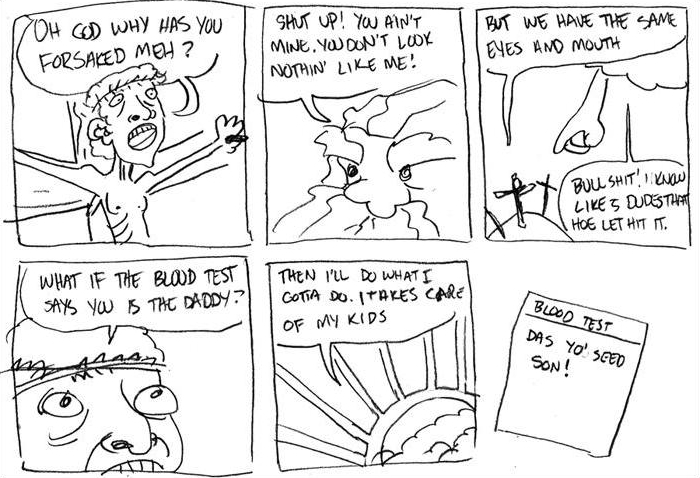 OH GOD WHY HAS YOU
FORSAKED MEH?
SHUT UP! YOU AIN'T
MINE. YOU DON'T LOOK
NOTHIN' LIKE ME!
BUT WE HAVE THE SAME
EYES AND MOUTH
BULLSHIT! I KNOW
LIKE 5 DUDES THAT
HOE LET HIT IT.
WHAT IF THE BLOOD TEST
SAYS YOU IS THE DADDY?
THEN I'LL DO WHAT I
GOTTA DO. I TAKES CARE
OF MY KIDS
BLOOD TEST
DAS YO' SEED
SON!